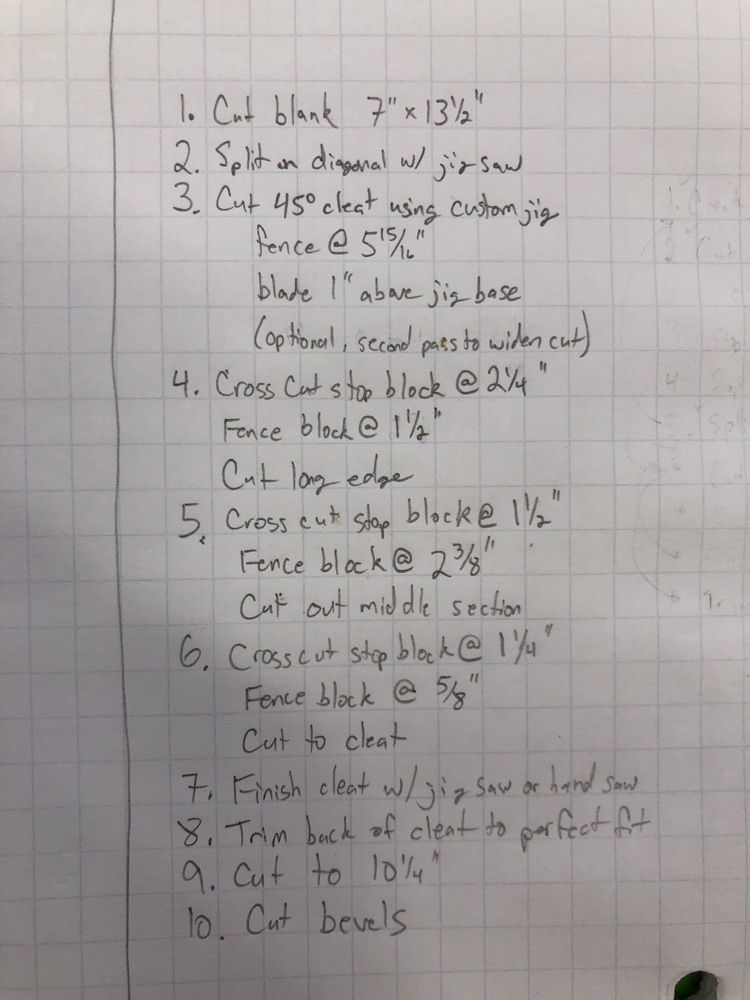 1. Cut blank 7" x 13 1/2"
2. Split on diagonal w/ jig saw
3. Cut 45° cleat using custom jig
fence @ 5 15/16"
blade 1" above jig base
(optional, second pass to widen cut)
4. Cross Cut stop block @ 2 1/4"
Fence block @ 1 1/2"
Cut long edge
5. Cross cut stop block @ 1 1/2"
Fence block @ 2 3/8"
Cut out middle section
6. Cross cut stop block @ 1 1/4"
Fence block @ 5/8"
Cut to cleat
7. Finish cleat w/ jig saw or hand saw
8. Trim back of cleat to perfect fit
9. Cut to 10 1/4"
10. Cut bevels